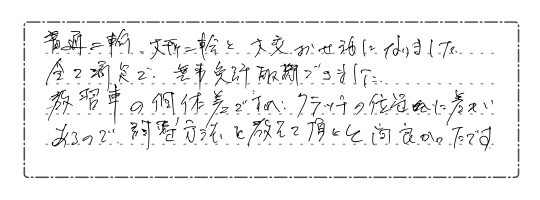 普通二輪、大型二輪と大変お世話になりました
全て満点で、無事免許取得できました
教習車の個体差ですね、クラッチの位置に差が
あるので、調整方法を教えて頂して尚良かったです